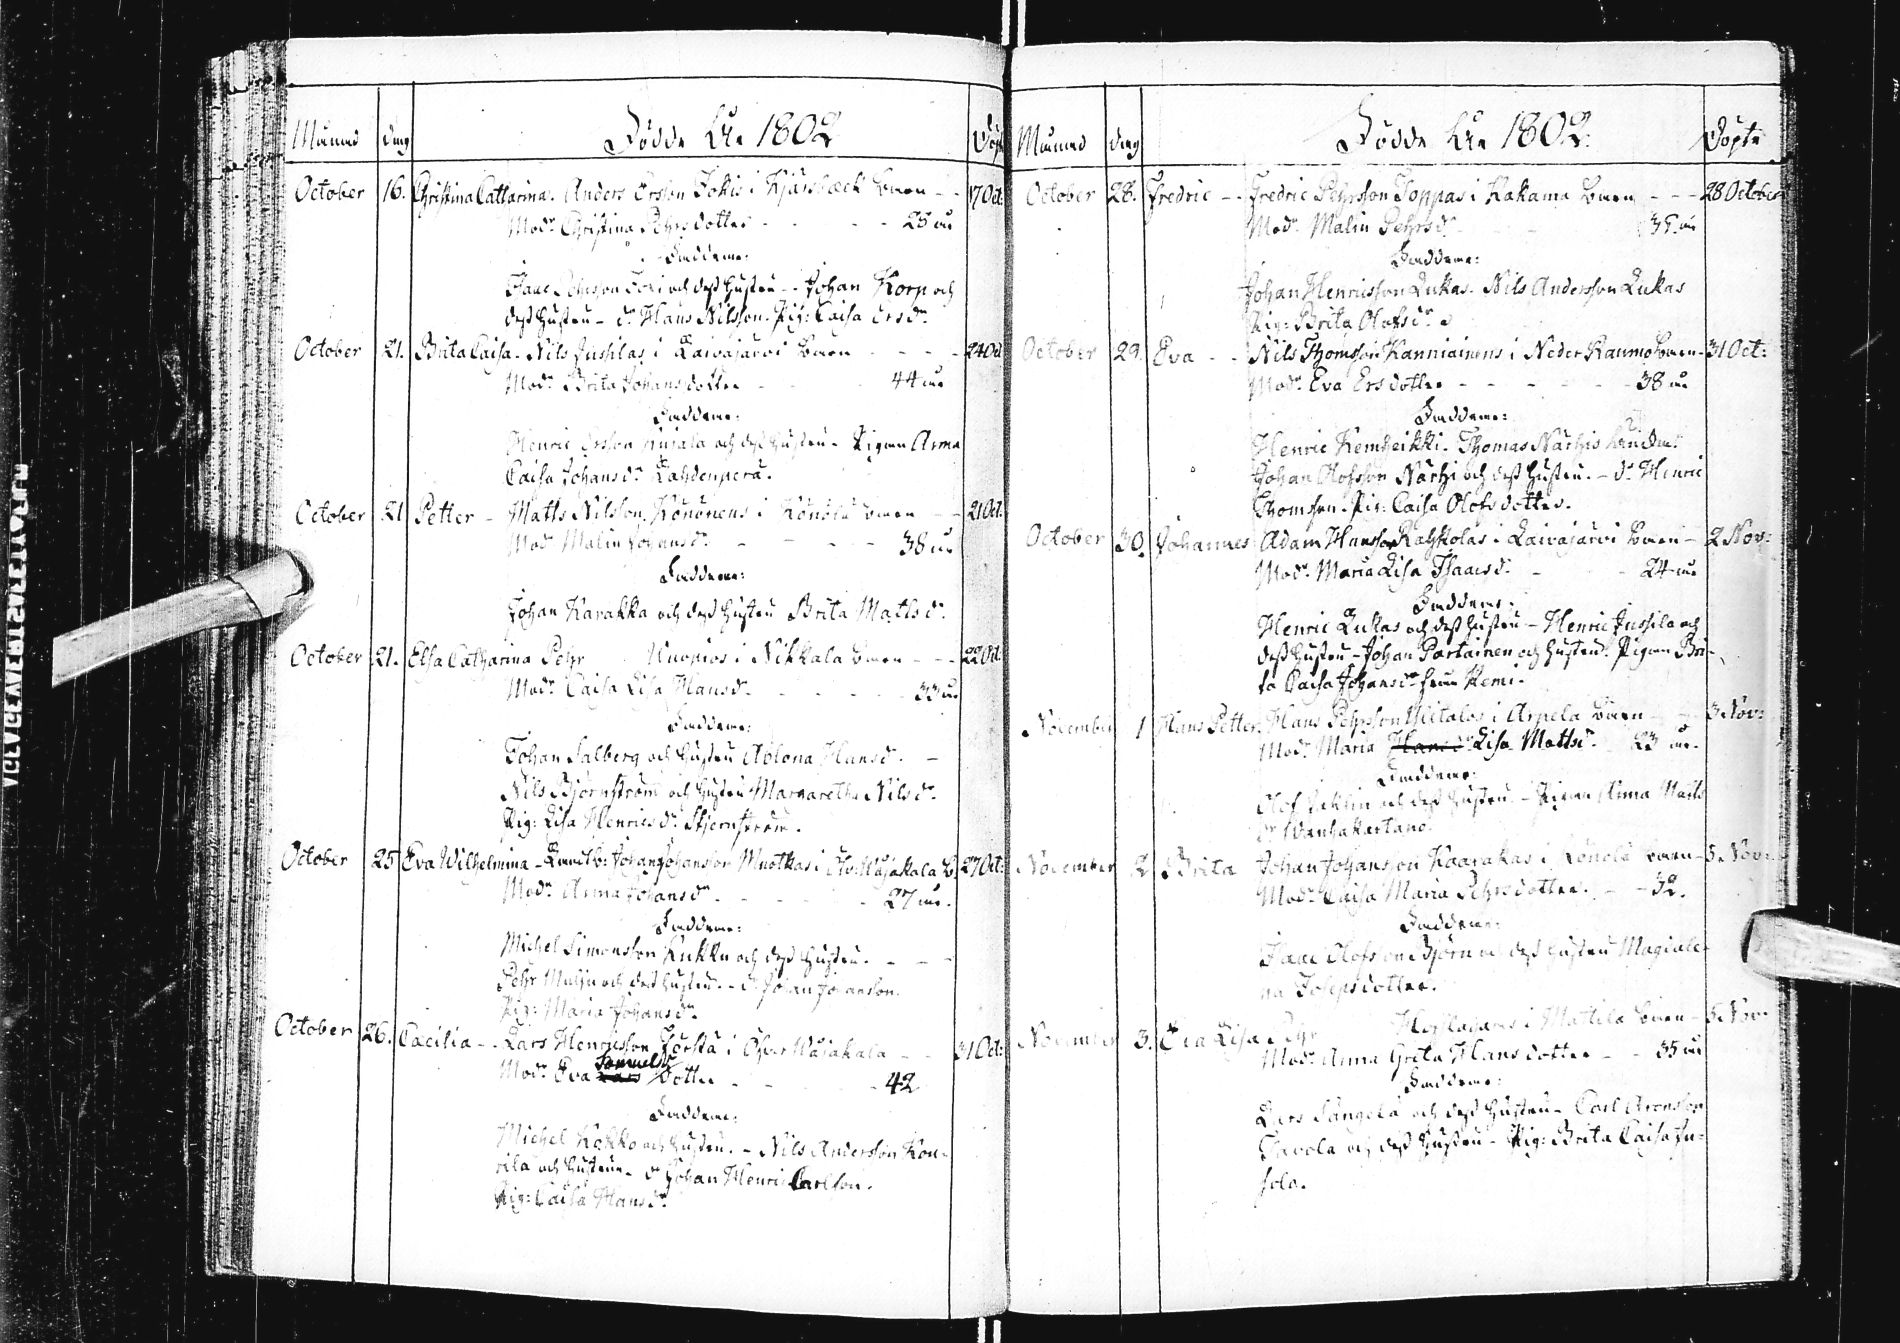 Månad dag Födde År 1802 Döpt
October 16. Christina Catharina. Anders Ersson Jokis i Kjäsbäck barn - - 17 Oct.
Modr Christina Pehrsdotter - - - 25 år
Faddrar:
Isaac Johnson Joki och dess hustru - Johan Korp och
dess hustru - dr Hans Nilsson. Pig: Caisa Ersdr
October 21. Brita Caisa - Nils Jussilas i Laivajärvi barn - - - 24 Oct
Modr Brita Johansdotter - - - 44 år
Faddrar:
Henric Ersson och dess hustru - Pigan Anna
Caisa Johansdr Lahdenperä.
October 21 Petter - Matts Nilsson Könönens i Könölä barn - - 21 Oct.
Modr Malin Johansdr - - - 38 år
Faddrar:
Johan Karakka och dess hustru Brita Mattsdr
October 21. Elsa Catharina Pehr Kuopios i Nikkala barn - - - 22 Oct.
Modr Caisa Lisa Hansdr - - - 33 år
Faddrar:
Johan Salberg och hustru Aplona Hansdr. -
Nils Björnström och hustru Margaretha Nilsdr
Pig: Lisa Henricsdr Stjernström.
October 25 Eva Wilhelmina - Johan Johansson Muotkas i Öfv: Wojakala b. 27 Oct:
Modr Anna Johansdr - - - 27 år.
Faddrar:
Michel Simonsson Kukko och dess hustru. - - -
Pehr och dess hustru. - dr Johan Johansson.
Pig: Maria Johansdr
October 26. Cæcilia - - Lars Henricsson i Öfver Wojakala - - 31 Oct:
Modr Eva Samuels dotter - - - 42
Faddrar:
Michel Kokko och hustru. - Nils Andersson Kou-
rila och hustrun - dr Johan Henric Carlson.
Pig: Caisa Hansdr
Månad dag Födde År 1802. Döpte
October 28. Fredric - - Fredric Pehrsson Toppas i Kakama barn - - - 28 October
Modr Malin Pehrsdr - - - 35 år
Faddrar:
Johan Henricsson Lukas. Nils Andersson Lukas
Pig: Brita Olofsdr
October 29. Eva - - Nils Thomsson Kanniainens i Neder Raumo barn - 31 Oct:
Modr Eva Ersdotter - - - 38 år
Faddrar:
Henric Kemiheikki. Thomas Närhis
Johan Olofsson Närhi och dess hustru. - dr Henric
Thomson. Pig: Caisa Olofsdotter.
October 30. Johannes Adam Hansson i Laivajärvi barn - 2 Nov:
Modr Maria Lisa Isaacsdr - - - 24 år
Faddrar:
Henric Lukas och dess hustru - Henric Jussila och
dess hustru - Johan Partainen och hustru. Pigan Bri-
ta Caisa Johansdr från Kemi.
November 1 Hans Petter. Hans Pehrsson Ylitalos i Arpela barn - - 3 Nov:
Modr Maria Lisa Mattsdr. 23 år.
Faddrar:
Olof och dess hustru. - Pigan Anna Matts
dr Wanhakartano.
November 2. Brita Johan Johansson Kaarakas i Könölä barn - 5 Nov:
Modr Caisa Maria Pehrsdotter. - - 32.
Faddrar:
Isaac Olofsson Björn och dess hustru Magdale-
na Josepsdotter.
November 3. Eva Lisa Pehr i Mattila barn - 5 Nov:
Modr Anna Greta Hansdotter - - 35 år
Faddrar:
Lars Sangelä och dess hustru - Carl Aronsson
Tavola och dess hustru - Pig: Brita Caisa Ju-
sola.